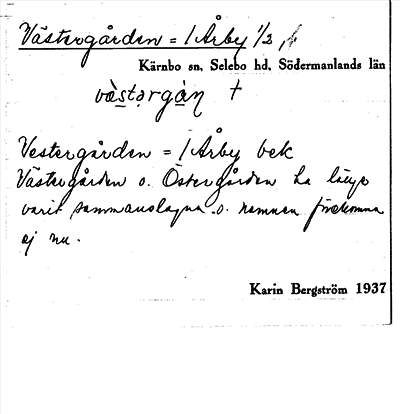 Västergården = 1 Årby 1/2
Kärnbo sn, Selebo hd, Södermanlands län
västərgàṇ †
Vestergården = 1 Årby bek
Västergården o. Östergården ha länge
varit sammanslagna o. namnen förekomma
ej nu.
Karin Bergström 1937